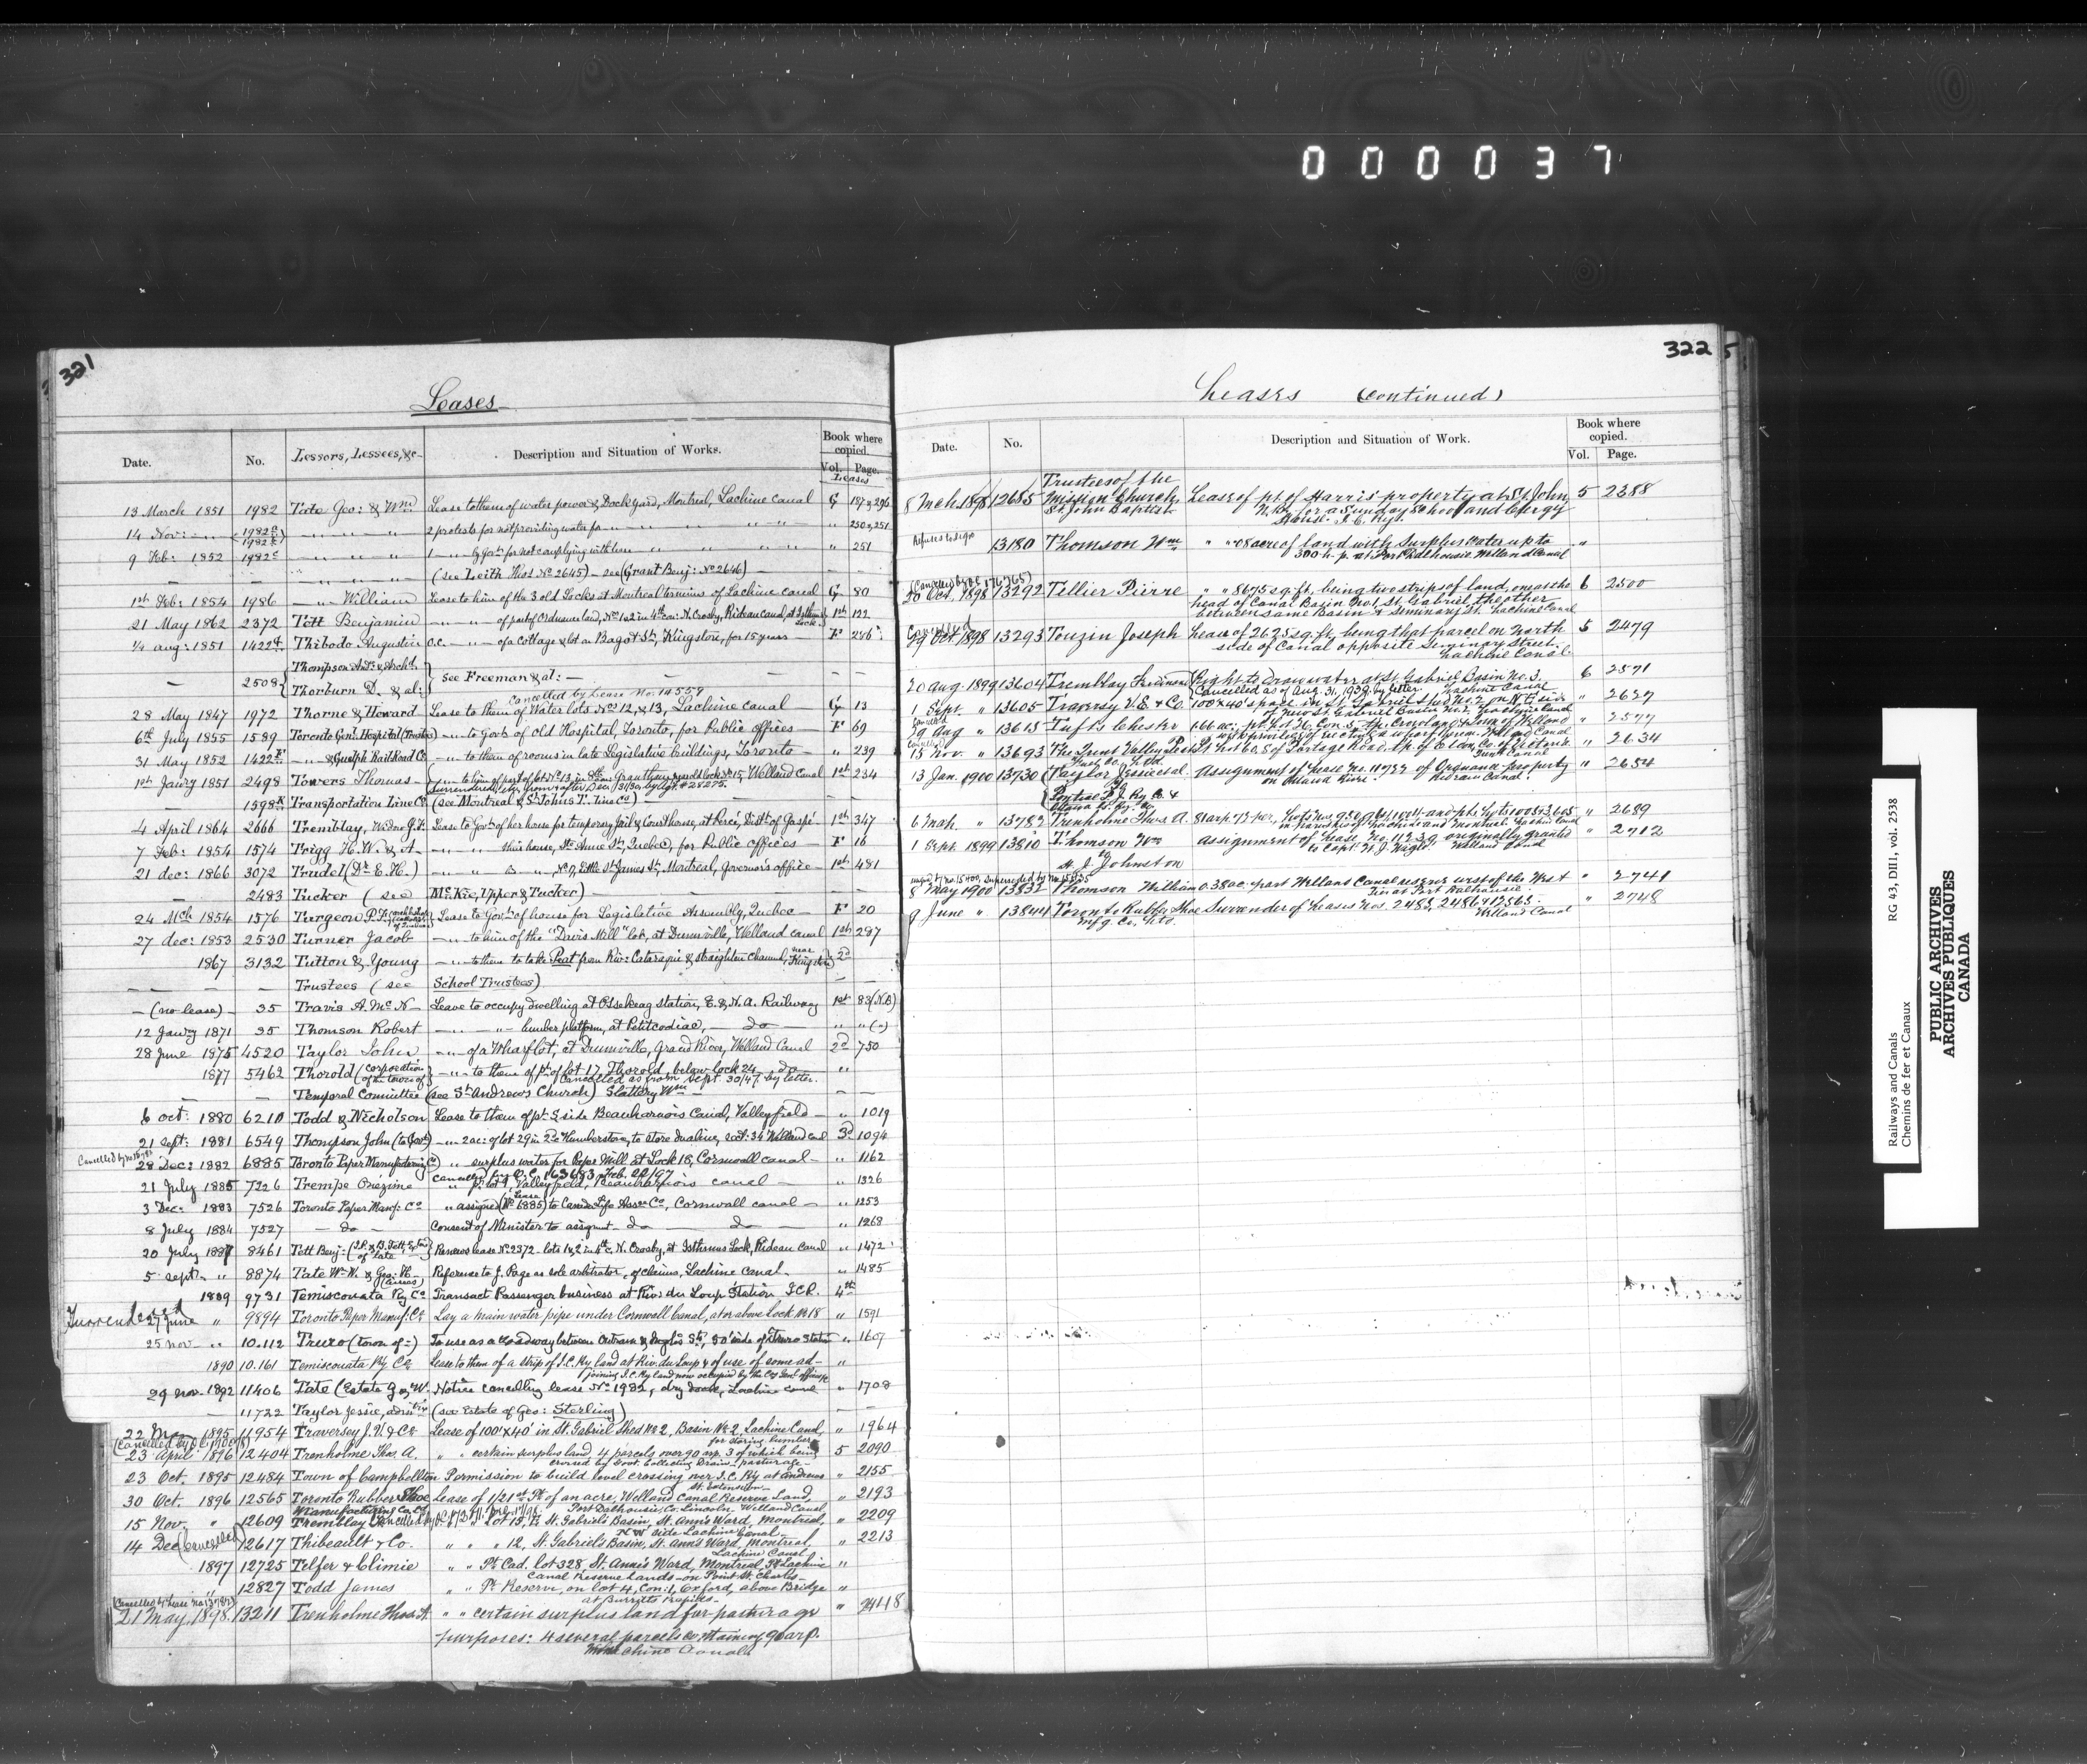 000037
321
Leases
Date. No. Lessors, Lessees, &c Description and Situation of Works. Book where copied. Vol. Page.
Leases
13 March 1851 1982 Tate Geo: & Wm Lease to them of water power & Dock yard, Montreal, Lachine canal G 187 & 296
14 Nov: 1982 2 protests for not providing water for 250 & 251
9 Feb: 1852 1982 1 by Govt. for not complying with terms " 251
(see Leith Thos. No 2645) – see (Grant Benj: No 2646)
1st Feb: 1854 1986 William Lease to him of the 3 old Locks at Montreal terminus of Lachine canal G 80
21 May 1862 2372 Tett Benjamin of part of Ordnance land, No 1 & 2 in 4th con: N. Crosby, Rideau canal, at Isthmus Lock 1st 122
aug: 1851 1422 Thibodo Augustin o.c. of a Cottage & lot on Bagot St, Kingston, for 15 years F 286
2508 Thompson Ad. & Archd. Thorburn D. & al: see Freeman & al:
Cancelled by Lease No. 14557
28 May 1847 1972 Thorne & Howard Lease to them of Water lots No 12, & 13, Lachine canal G 13
6th July 1855 1589 Toronto Genl. Hospital (Trustees) to Govt. of old Hospital, Toronto, for Public offices F 69
31 May 1852 1422 & Guelph Rail Road Co. to them of rooms in late Legislative buildings, Toronto " 239
1st Janry 1851 2498 Towers Thomas to him of part of lot No 13, in 8th con: Grantham, near old lock No 15, Welland canal 1st 234
Surrendered, from & after Dec. 31/30, by Agt. # 28275.
1598 Transportation Line Co. (see Montreal & St Johns T. Line Co)
4 April 1864 2666 Tremblay, Widow J. Lease to Govt. of her house for temporary Jail & Courthouse, at Percé, Dist. of Gaspé 1st 347
7 Feb: 1854 1574 Trigg H. W. & A. this house, St. Anne St, Quebec, for Public offices F 16
21 dec: 1866 3072 Trudel (Dr E. H.) No 7, Little St James St, Montreal, Governor's office 1st 481
2483 Tucker (see McKie, Upper & Tucker)
24 Mch 1854 1576 Turgeon P. F. Lease to Govt. of house for Legislative Assembly, Quebec F 20
27 dec: 1853 2530 Turner Jacob to him of the "Davis Mill" lot, at Dunnville, Welland canal 1st 297
1867 3132 Tutton & Young to them to take Peat from Riv: Cataraqui & straighten channel, near Kingston 2d
Trustees (see School Trustees)
(no lease) 35 Travis A. McN Leave to occupy dwelling at Ossekeag station, E. & N. A. Railway 1st 83 (N.B)
12 Janry 1871 35 Thomson Robert lumber platform, at Petitcodiac, do " " (")
28 June 1875 4520 Taylor John of a Wharf lot, at Dunnville, Grand River, Welland Canal 2d 750
1877 5462 Thorold (corporation of the town of) to them of pt of lot 17, Thorold, below lock 24 do "
Cancelled as from Sept. 30/47, by letter.
Temporal Committee (see St Andrews Church) Slattery Wm
6 oct: 1880 6210 Todd & Nicholson Lease to them of pt S side Beauharnois Canal, Valleyfield " 1019
21 sept: 1881 6549 Thompson John (to Govt) 2 ac: of lot 29 in 2d c Humberstone, to store dualine, sect: 34 Welland canal 3d 1094
Cancelled by
28 Dec: 1882 6885 Toronto Paper Manufacturing Co " surplus water for Paper Mill at Lock 18, Cornwall canal " 1162
Cancelled by O.C. 163683 Feb. 22/97
21 July 1885 7226 Trempe Onezime " pt lot 9, Valleyfield, Beauharnois canal " 1326
3 Dec: 1883 7526 Toronto Paper Manf: Co " assigned (Lease No 6885) to Canada Life Assce Co, Cornwall canal " 1253
8 July 1884 7527 do Consent of Minister to assignmt do do " 1268
20 July 1887 8461 Tett Benj: Renews lease No 2372 lots 1 & 2 in 4th c. N. Crosby, at Isthmus Lock, Rideau canal " 1472
5 sept " 8874 Tate W. W. & Geo. H. Reference to J. Page as sole arbitrator, of claims, Lachine canal " 1485
1889 9731 Temiscouata Ry Co Transact Passenger business at Riv: du Loup Station I.C.R. 4th
Surrendered
27 June " 9894 Toronto Paper Manuf: Co Lay a main water pipe under Cornwall Canal, at or above Lock No 18 " 1591
25 nov " 10.112 Truro (town of) To use as a roadway between Outram & Inglis St, 50' wide of Truro Station " 1607
1890 10.161 Temiscouata Ry Co Lease to them of a strip of I.C. Ry land at Riv. du Loup & of use of some adjoining I.C. Ry land now occupied by the Co's Genl offices "
29 nov. 1892 11406 Tate (Estate G & W. Notice cancelling lease No 1982, dry dock, Lachine canal " 1708
11722 Taylor Jessie, admtrix (see Estate of Geo: Sterling)
22 Mar 1895 11954 Traversy J. V. & Co Lease of 100' x 40' in St. Gabriel Shed No 2, Basin No 2, Lachine Canal, for storing lumber " 1964
23 April 1896 12404 Trenholme Thos. A. " " certain surplus land, 4 parcels over 90 arp. 3 of which being crossed by Govt. Collecting Drain – pasturage 5 2090
23 Oct. 1895 12484 Town of Campbellton Permission to build level crossing over I.C. Ry at Andrews St. Extension " 2155
30 Oct. 1896 12565 Toronto Rubber Shoe Manufacturing Co. Ltd Lease of 1/21st Pt of an acre, Welland Canal Reserve Land, Port Dalhousie, Co. Lincoln Welland Canal " 2193
15 Nov. " 12609 Tremblay Lot 15, St. Gabriel's Basin, St. Ann's Ward, Montreal, N W side Lachine Canal " 2209
14 Dec (Cancelled) 12617 Thibeault & Co. " " " 12, St. Gabriel's Basin, St. Ann's Ward, Montreal, Lachine Canal " 2213
1897 12725 Telfer & Climie " " Pt Cad. lot 328, St. Ann's Ward, Montreal Pt Lachine Canal Reserve Lands – on Point St. Charles "
" 12827 Todd James " " Pt Reserve, on lot 4, Con: 1, Oxford, above Bridge at Burritts Rapids "
21 May. 1898. 13211 Trenholme Thos A. " " certain surplus land for pasturage " 2448
purposes: 4 several parcels containing 90 arp.
Lachine Canal
322
Leases (Continued)
Date. No. Description and Situation of Work. Book where copied. Vol. Page.
8 Mch. 1898 12685 Trustees of the Mission Church St. John Baptist Lease of pt. of Harris property at St. John, N.B. for a Sunday School and Clergy House. I. C. Rys. 5 2388
Refuses to sign 13180 Thomson Wm " " .08 acre of land with surplus water up to 300 h.p. at Port Dalhousie Welland Canal "
(Cancelled by O.C. 176765)
20 Oct. 1898 13292 Tellier Pierre " " 8675 sq. ft. being two strips of land, one at the head of Canal Basin No. 1, St. Gabriel, the other between same Basin & Seminary St. Lachine Canal 6 2500
Cancelled
29 Oct. 1898 13293 Touzin Joseph Lease of 2625 sq. ft, being that parcel on North side of Canal opposite Seminary Street. Lachine Canal. 5 2479
20 Aug. 1899 13604 Tremblay Ferdinand Right to Draw water at St. Gabriel Basin No. 3. 6 2571
Cancelled as of Aug. 31, 1939, by letter. Lachine Canal
1 Sept. " 13605 Traversy V. E. & Co. 100x40' space in St. Gabriel Shed No. 2 on N. E. side of New St. Gabriel Basin No. 2, Lachine Canal " 2627
29 Aug " 13615 Tufts Chester 1.66 ac: pt. Con. 5, tp. Crowland & Town of Welland with privilege of erecting a wharf thereon Welland Canal " 2577
15 Nov. " 13693 The Trent Valley Peat Fuel Co. Ltd. Pt. Lot 60, S of Portage Road, tp. of Eldon, Co. of Victoria Trent Canal " 2634
13 Jan. 1900 13730 Taylor Jessie et al. to Pontiac P. J. Ry Co. & Ottawa Ry. Co. Assignment of Lease No. 11722 of Ordnance property on Ottawa River. Rideau Canal. " 2654
6 Mch. " 13782 Trenholme Thos. A. 81 arp. 73 per., Lots Nos. in Parishes of Lachine and Montreal. Lachine Canal " 2689
1 Sept. 1899 13810 Thomson Wm to H. J. Johnston Assignment of Lease No. 11230 originally granted to Capt. W. J. Lachine Welland Canal " 2712
8 May 1900 13832 Thomson William 0.38 ac. part Welland Canal reserve west of the Weir at Port Dalhousie " 2741
9 June " 13844 Toronto Rubber Shoe Mfg. Co. Ltd. Surrender of Leases Nos. 2485, 2486 & 12565. Welland Canal " 2748
Railways and Canals RG 43, DIII, vol. 2538
Chemins de fer et Canaux
PUBLIC ARCHIVES
ARCHIVES PUBLIQUES
CANADA